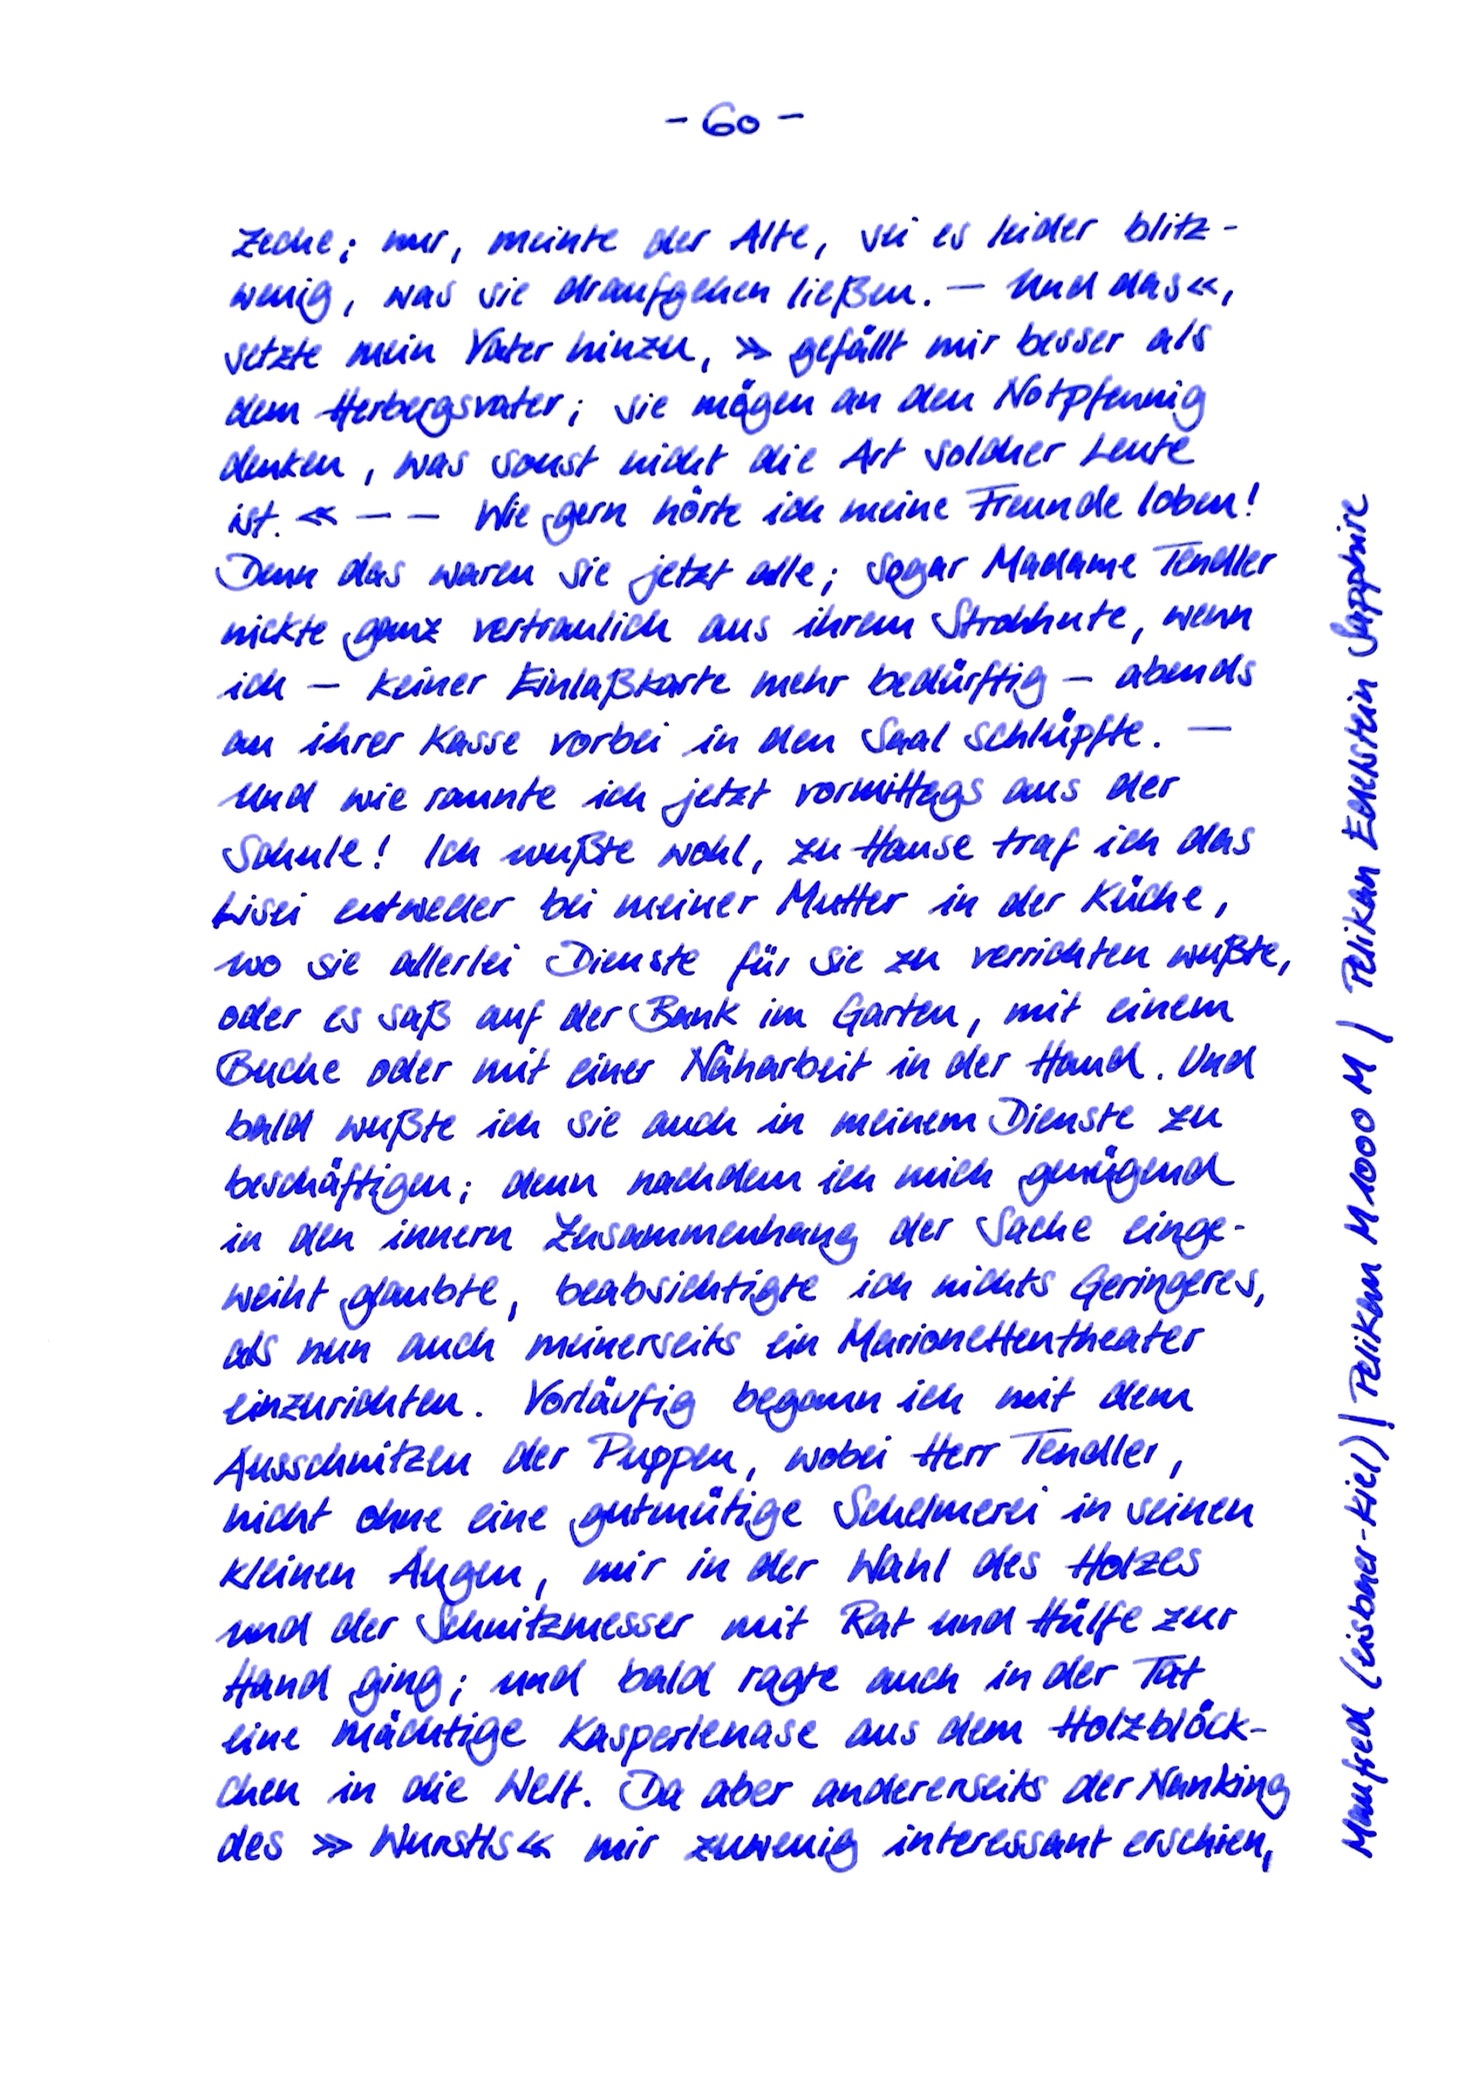 - 60 -
Zeche; nur, meinte der Alte, sei es leider blitz-
wenig, was sie draufgehen ließen. — Und das«,
setzte mein Vater hinzu, »gefällt mir besser als
dem Herbergsvater; sie mögen an den Notpfennig
denken, was sonst nicht die Art solcher Leute
ist.« — — Wie gern hörte ich meine Freunde loben!
Denn das waren sie jetzt alle; sogar Madame Tendler
nickte ganz vertraulich aus ihrem Strohhute, wenn
ich — keiner Einlaßkarte mehr bedürftig — abends
an ihrer Kasse vorbei in den Saal schlüpfte. —
Und wie rannte ich jetzt vormittags aus der
Schule! Ich wußte wohl, zu Hause traf ich das
Lisei entweder bei meiner Mutter in der Küche,
wo sie allerlei Dienste für sie zu verrichten wußte,
oder es saß auf der Bank im Garten, mit einem
Buche oder mit einer Näharbeit in der Hand. Und
bald wußte ich sie auch in meinem Dienste zu
beschäftigen; denn nachdem ich mich genügend
in den innern Zusammenhang der Sache einge-
weiht glaubte, beabsichtigte ich nichts Geringeres,
als nun auch meinerseits ein Marionettentheater
einzurichten. Vorläufig begann ich mit dem
Ausschnitzen der Puppen, wobei Herr Tendler,
nicht ohne eine gutmütige Schelmerei in seinen
kleinen Augen, mir in der Wahl des Holzes
und der Schnitzmesser mit Rat und Hülfe zur
Hand ging; und bald ragte auch in der Tat
eine mächtige Kasperlenase aus dem Holzblöck-
chen in die Welt. Da aber andererseits der Nanking
des »Wurstls« mir zuwenig interessant erschien,
Manfred (eisbaer-kiel) | Pelikan M1000 M | Pelikan Edelstein Sapphire